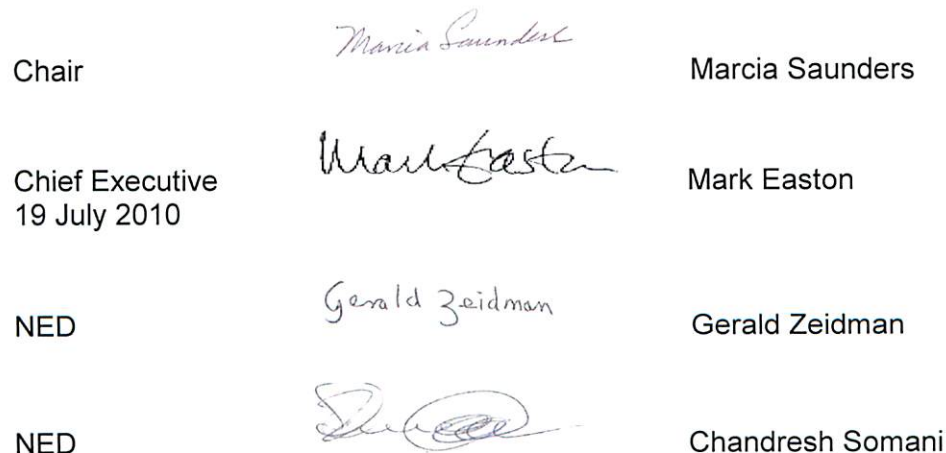 Chair Marcia Saunders Marcia Saunders
Chief Executive Mark Easton Mark Easton
19 July 2010
NED Gerald Zeidman Gerald Zeidman
NED Chandresh Somani